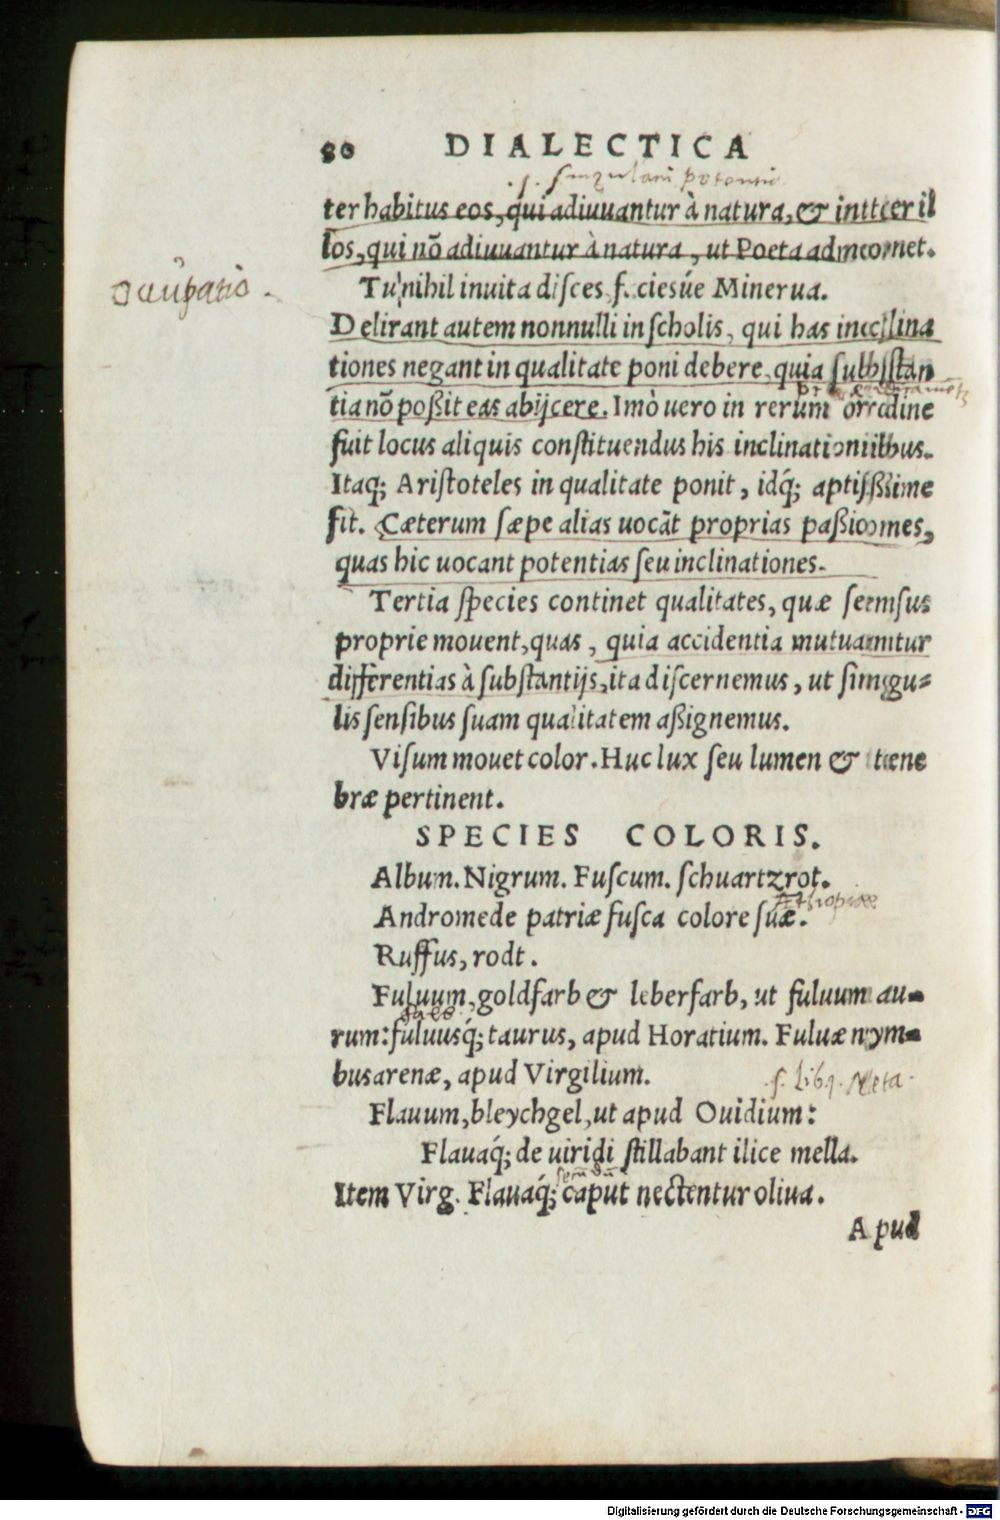 80 DIALECTICA
.s. singulari potentia
ter habitus eos, qui adiuuantur à natura, & inter il
los, qui nō adiuuantur à natura, ut Poeta admonet.
Tu nihil inuita disces faciesúe Minerua.
occupatio.
Delirant autem nonnulli in scholis, qui has inclina
tiones negant in qualitate poni debere, quia substan
tia nō poßit eas abijcere. Imò uero in rerum ordine
fuit locus aliquis constituendus his inclinationibus.
Itaq; Aristoteles in qualitate ponit, idq́; aptißime
fit. Cæterum sæpe alias uocāt proprias paßiones,
quas hic uocant potentias seu inclinationes.
Tertia species continet qualitates, quæ sensus
proprie mouent, quas, quia accidentia mutuantur
differentias à substantijs, ita discernemus, ut singu=
lis sensibus suam qualitatem aßignemus.
Visum mouet color. Huc lux seu lumen & tene
bræ pertinent.
SPECIES COLORIS.
Album. Nigrum. Fuscum. schuartzrot.
Æthiopiae
Andromede patriæ fusca colore suæ.
Ruffus, rodt.
Fuluum, goldfarb & leberfarb, ut fuluum au=
rum: fuluusq́; taurus, apud Horatium. Fuluæ nym=
bus arenæ, apud Virgilium.
.s. lib. 1. Meta.
Flauum, bleychgel, ut apud Ouidium:
Flauaq́; de uiridi stillabant ilice mella.
Item Virg. Flauaq́; caput nectentur oliua.
Apud
Digitalisierung gefördert durch die Deutsche Forschungsgemeinschaft - DFG